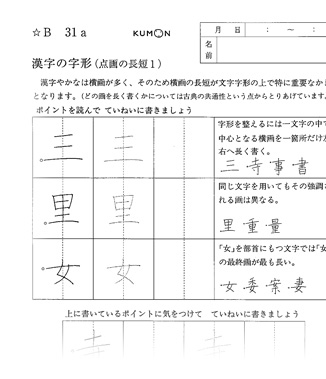 ☆B 31a
KUMON
月 日 : ～ :
名前
漢字の字形（点画の長短１）
漢字やかなは横画が多く、そのため横画の長短が文字字形の上で特に重要なか
となります。（どの画を長く書くかについては古典の共通性という点からとりあげています。
ポイントを読んで ていねいに書きましょう
三 三
字形を整えるには一文字の中で
中心となる横画を一箇所だけ左
右へ長く書く。
三 寺 事 書
里 里
同じ文字を用いてもその強調さ
れる画は異なる。
里 重 量
女 女
「女」を部首にもつ文字では「女
の最終画が最も長い。
女 委 案 妻
上に書いているポイントに気をつけて ていねいに書きましょう